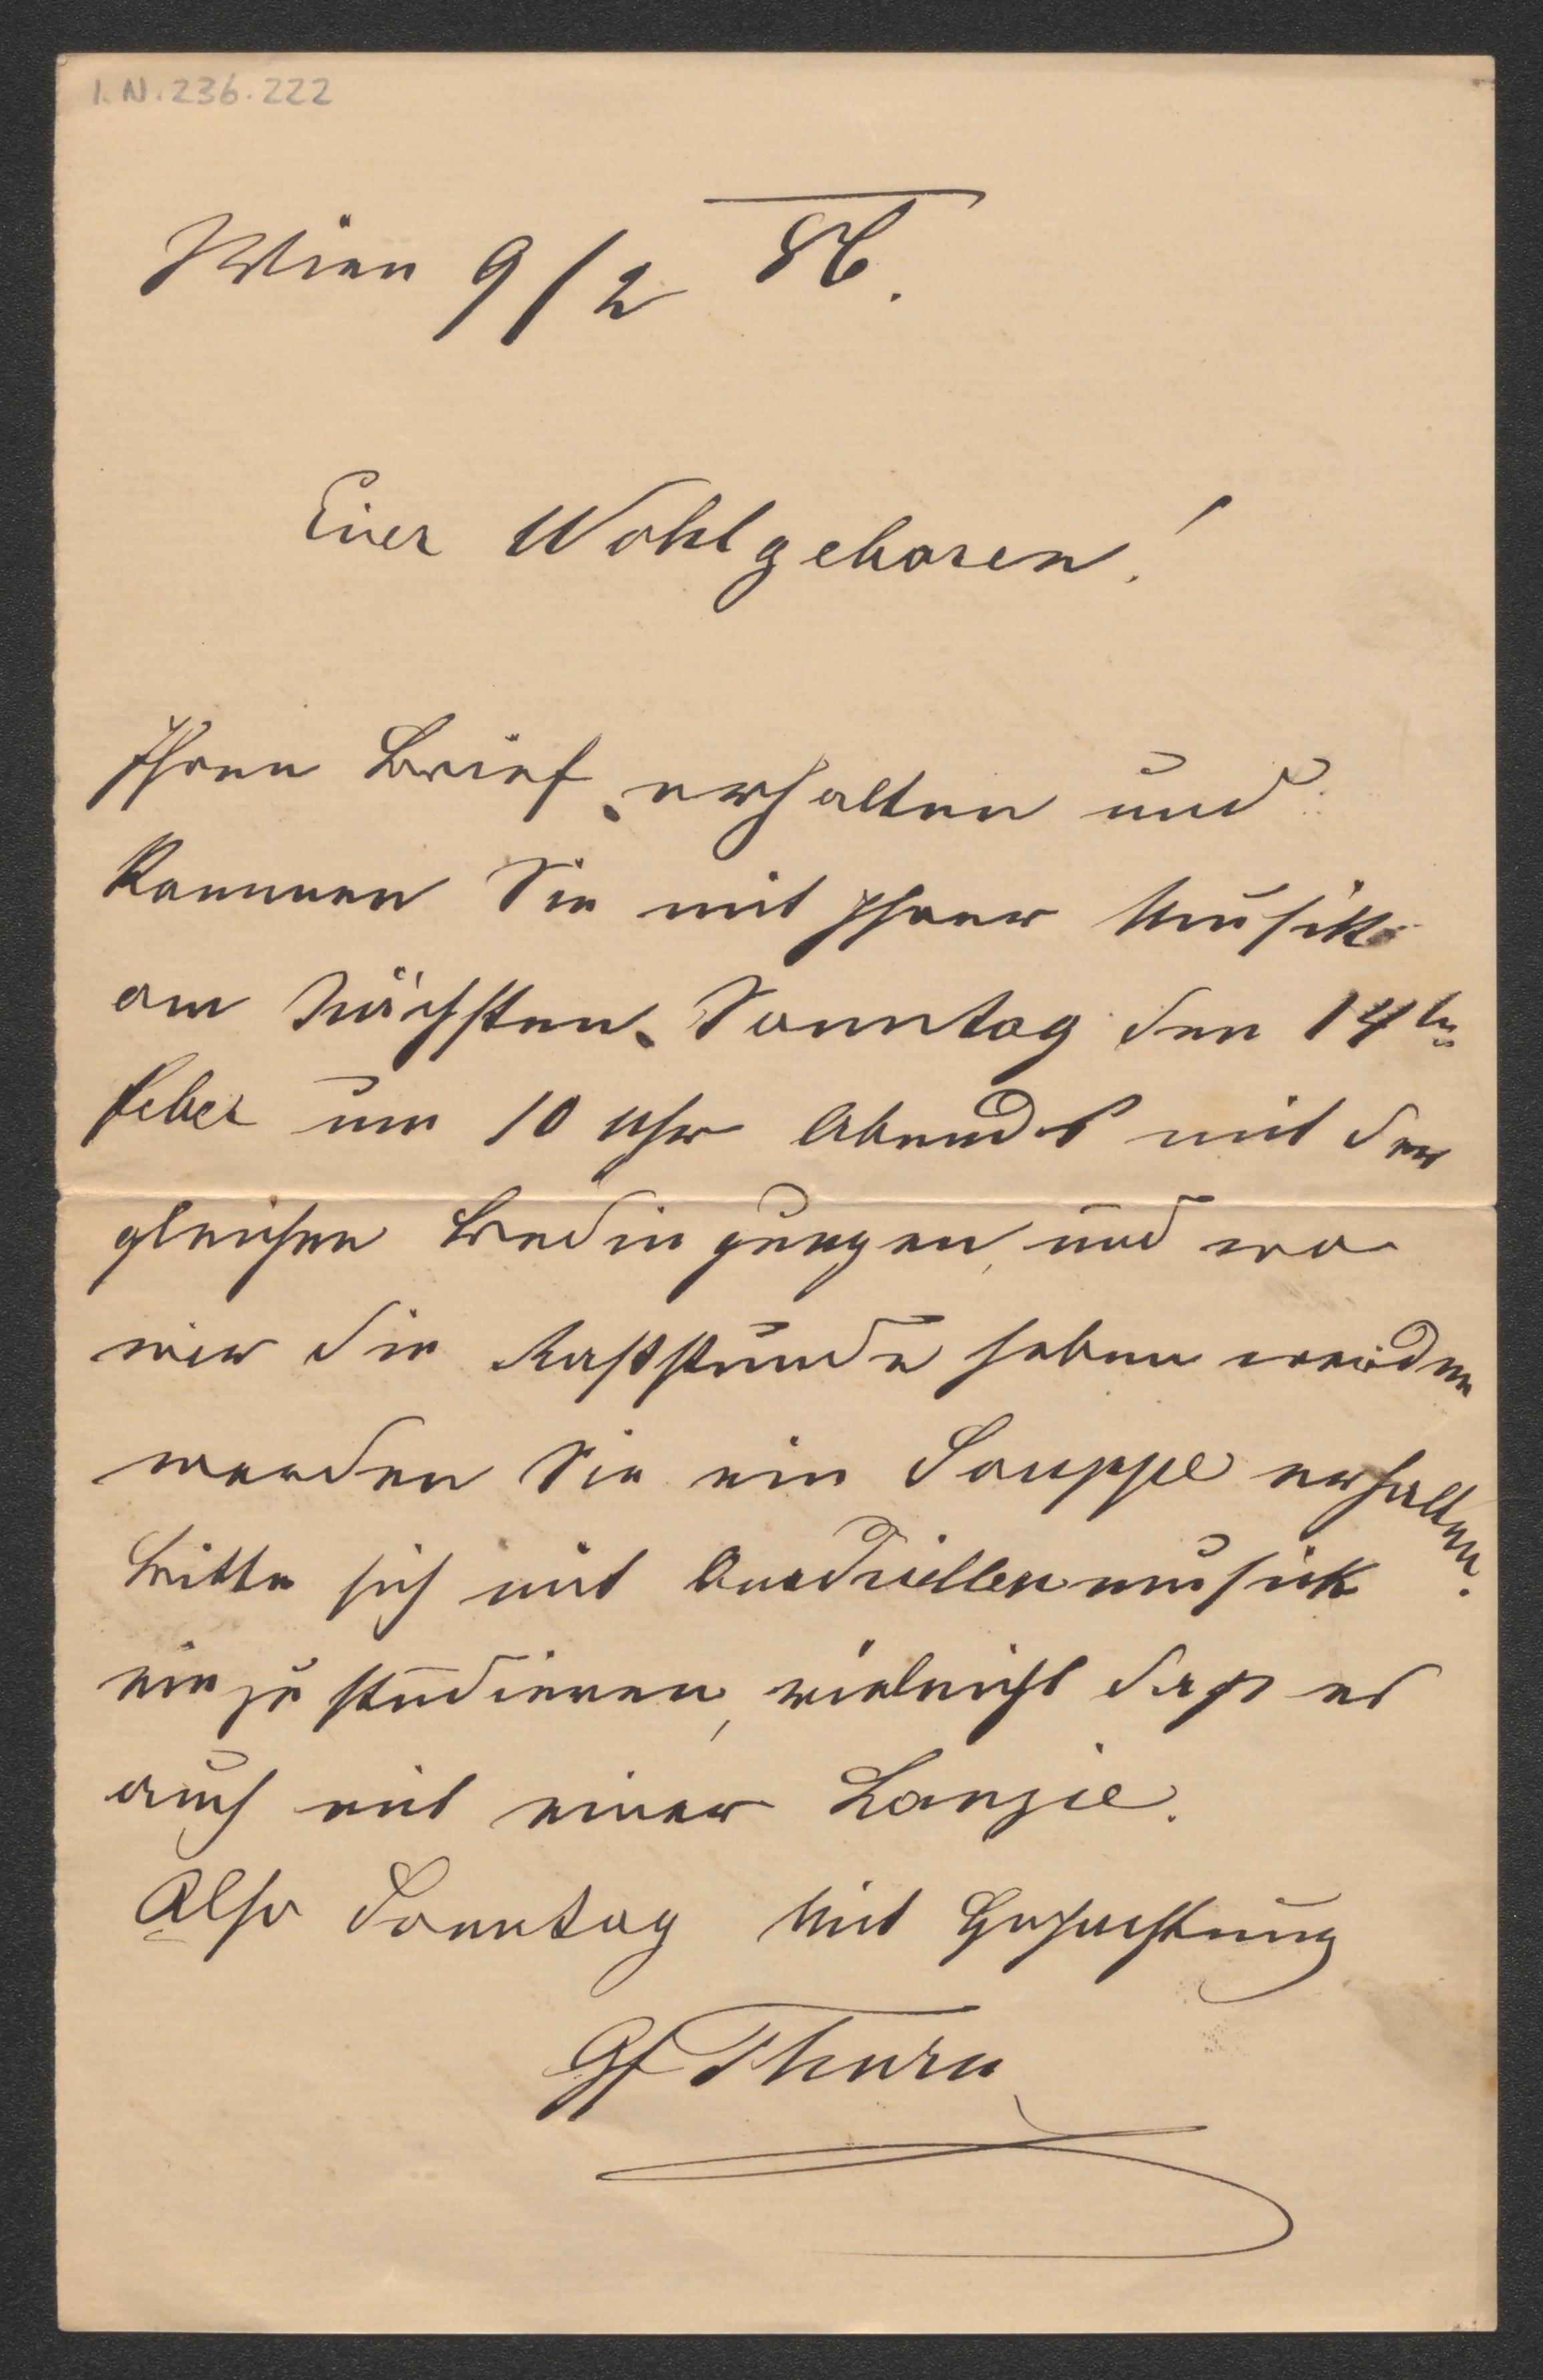 I.N. 236.222
Wien 9/2 86.
Euer Wohlgeboren!
Ihren Brief erhalten und
kommen Sie mit Ihrer Musik
am Nächsten Sonntag den 14ten
Feber um 10 Uhr Abends mit den
gleichen Bedingungen, und wo
wir die Raststunde haben werden
werden Sie ein Souppe erhalten.
Bitte sich mit Quadrillenmusik
einzustudieren, vielleicht daß es
auch mit einer Lanzie.
Also Sonntag Mit Hochachtung
Gf Thurn